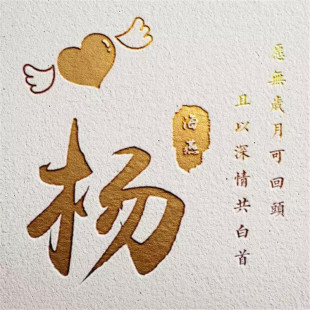 愿無歲月可回頭
且以深情共白首
海燕
杨